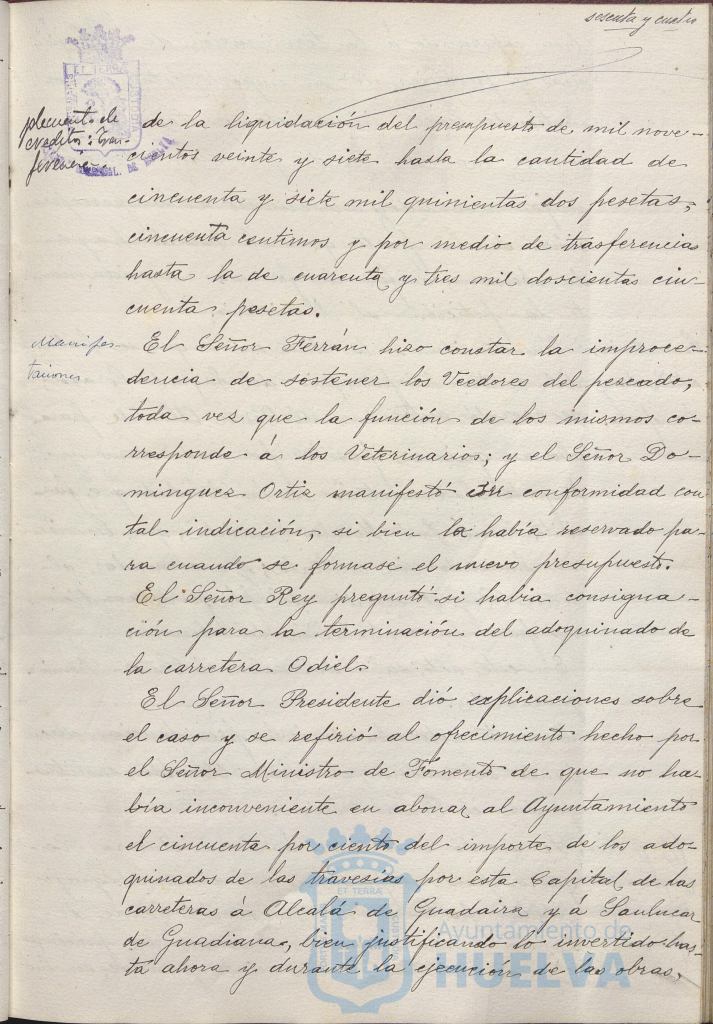 sesenta y cuatro
plemento de
credito: Trans-
ferencia
de la liquidación del presupuesto de mil nove-
cientos veinte y siete hasta la cantidad de
cincuenta y siete mil quinientas dos pesetas,
cincuenta centimos y por medio de trasferencias
hasta la de cuarenta y tres mil doscientas cin-
cuenta pesetas.
Manifes-
taciones
El Señor Ferrán hizo constar la improce-
dencia de sostener los Veedores del pescado,
toda vez que la función de los mismos co-
rresponde á los Veterinarios; y el Señor Do-
minguez Ortiz manifestó su conformidad con
tal indicación, si bien la había reservado pa-
ra cuando se formase el nuevo presupuesto.
El Señor Rey preguntó si habia consigna-
ción para la terminación del adoquinado de
la carretera Odiel.
El Señor Presidente dió explicaciones sobre
el caso y se refirió al ofrecimiento hecho por
el Señor Ministro de Fomento de que no ha-
bía inconveniente en abonar al Ayuntamiento
el cincuenta por ciento del importe de los ado-
quinados de las travesías por esta Capital de las
carreteras á Alcalá de Guadaira y á Sanlucar
de Guadiana, bien justificando lo invertido has-
ta ahora y durante la ejecución de las obras,
ET TERRÆ
Ayuntamiento de
HUELVA